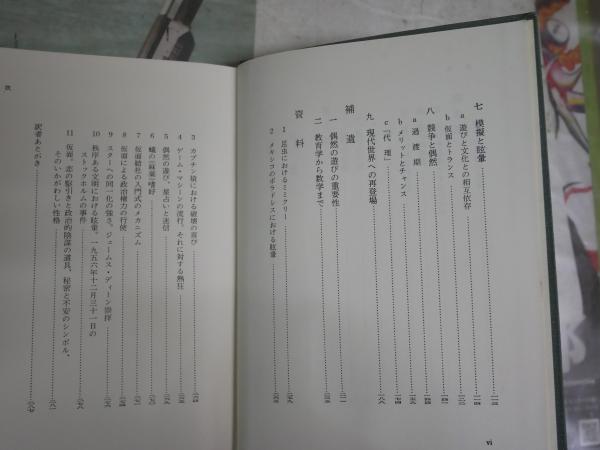 七 模擬と眩暈
a 遊びと文化との相互依存
b 仮面とトランス
八 競争と偶然
a 過渡期
b メリットとチャンス
c「代理」
九 現代世界への再登場
補遺
一 偶然の遊びの重要性
二 教育学から数学まで
資料
1 昆虫におけるミミクリー
2 メキシコのボラドレスにおける眩暈
vi
3 カプチン猿における破壊の喜び
4 ゲーム・マシーンの流行。それに対する熱狂
5 偶然の遊び、星占いと迷信
6 蟻の「麻薬」嗜好
7 仮面結社の入門式のメカニズム
8 仮面による政治権力の行使
9 スターへの同一化の強さ。ジェームス・ディーン崇拝
10 秩序ある文明における眩暈。一九五六年十二月三十一日の
ストックホルムの事件
11 仮面。恋の駆引きと政治的陰謀の道具。秘密と不安のシンボル。
そのいかがわしい性格
訳者あとがき